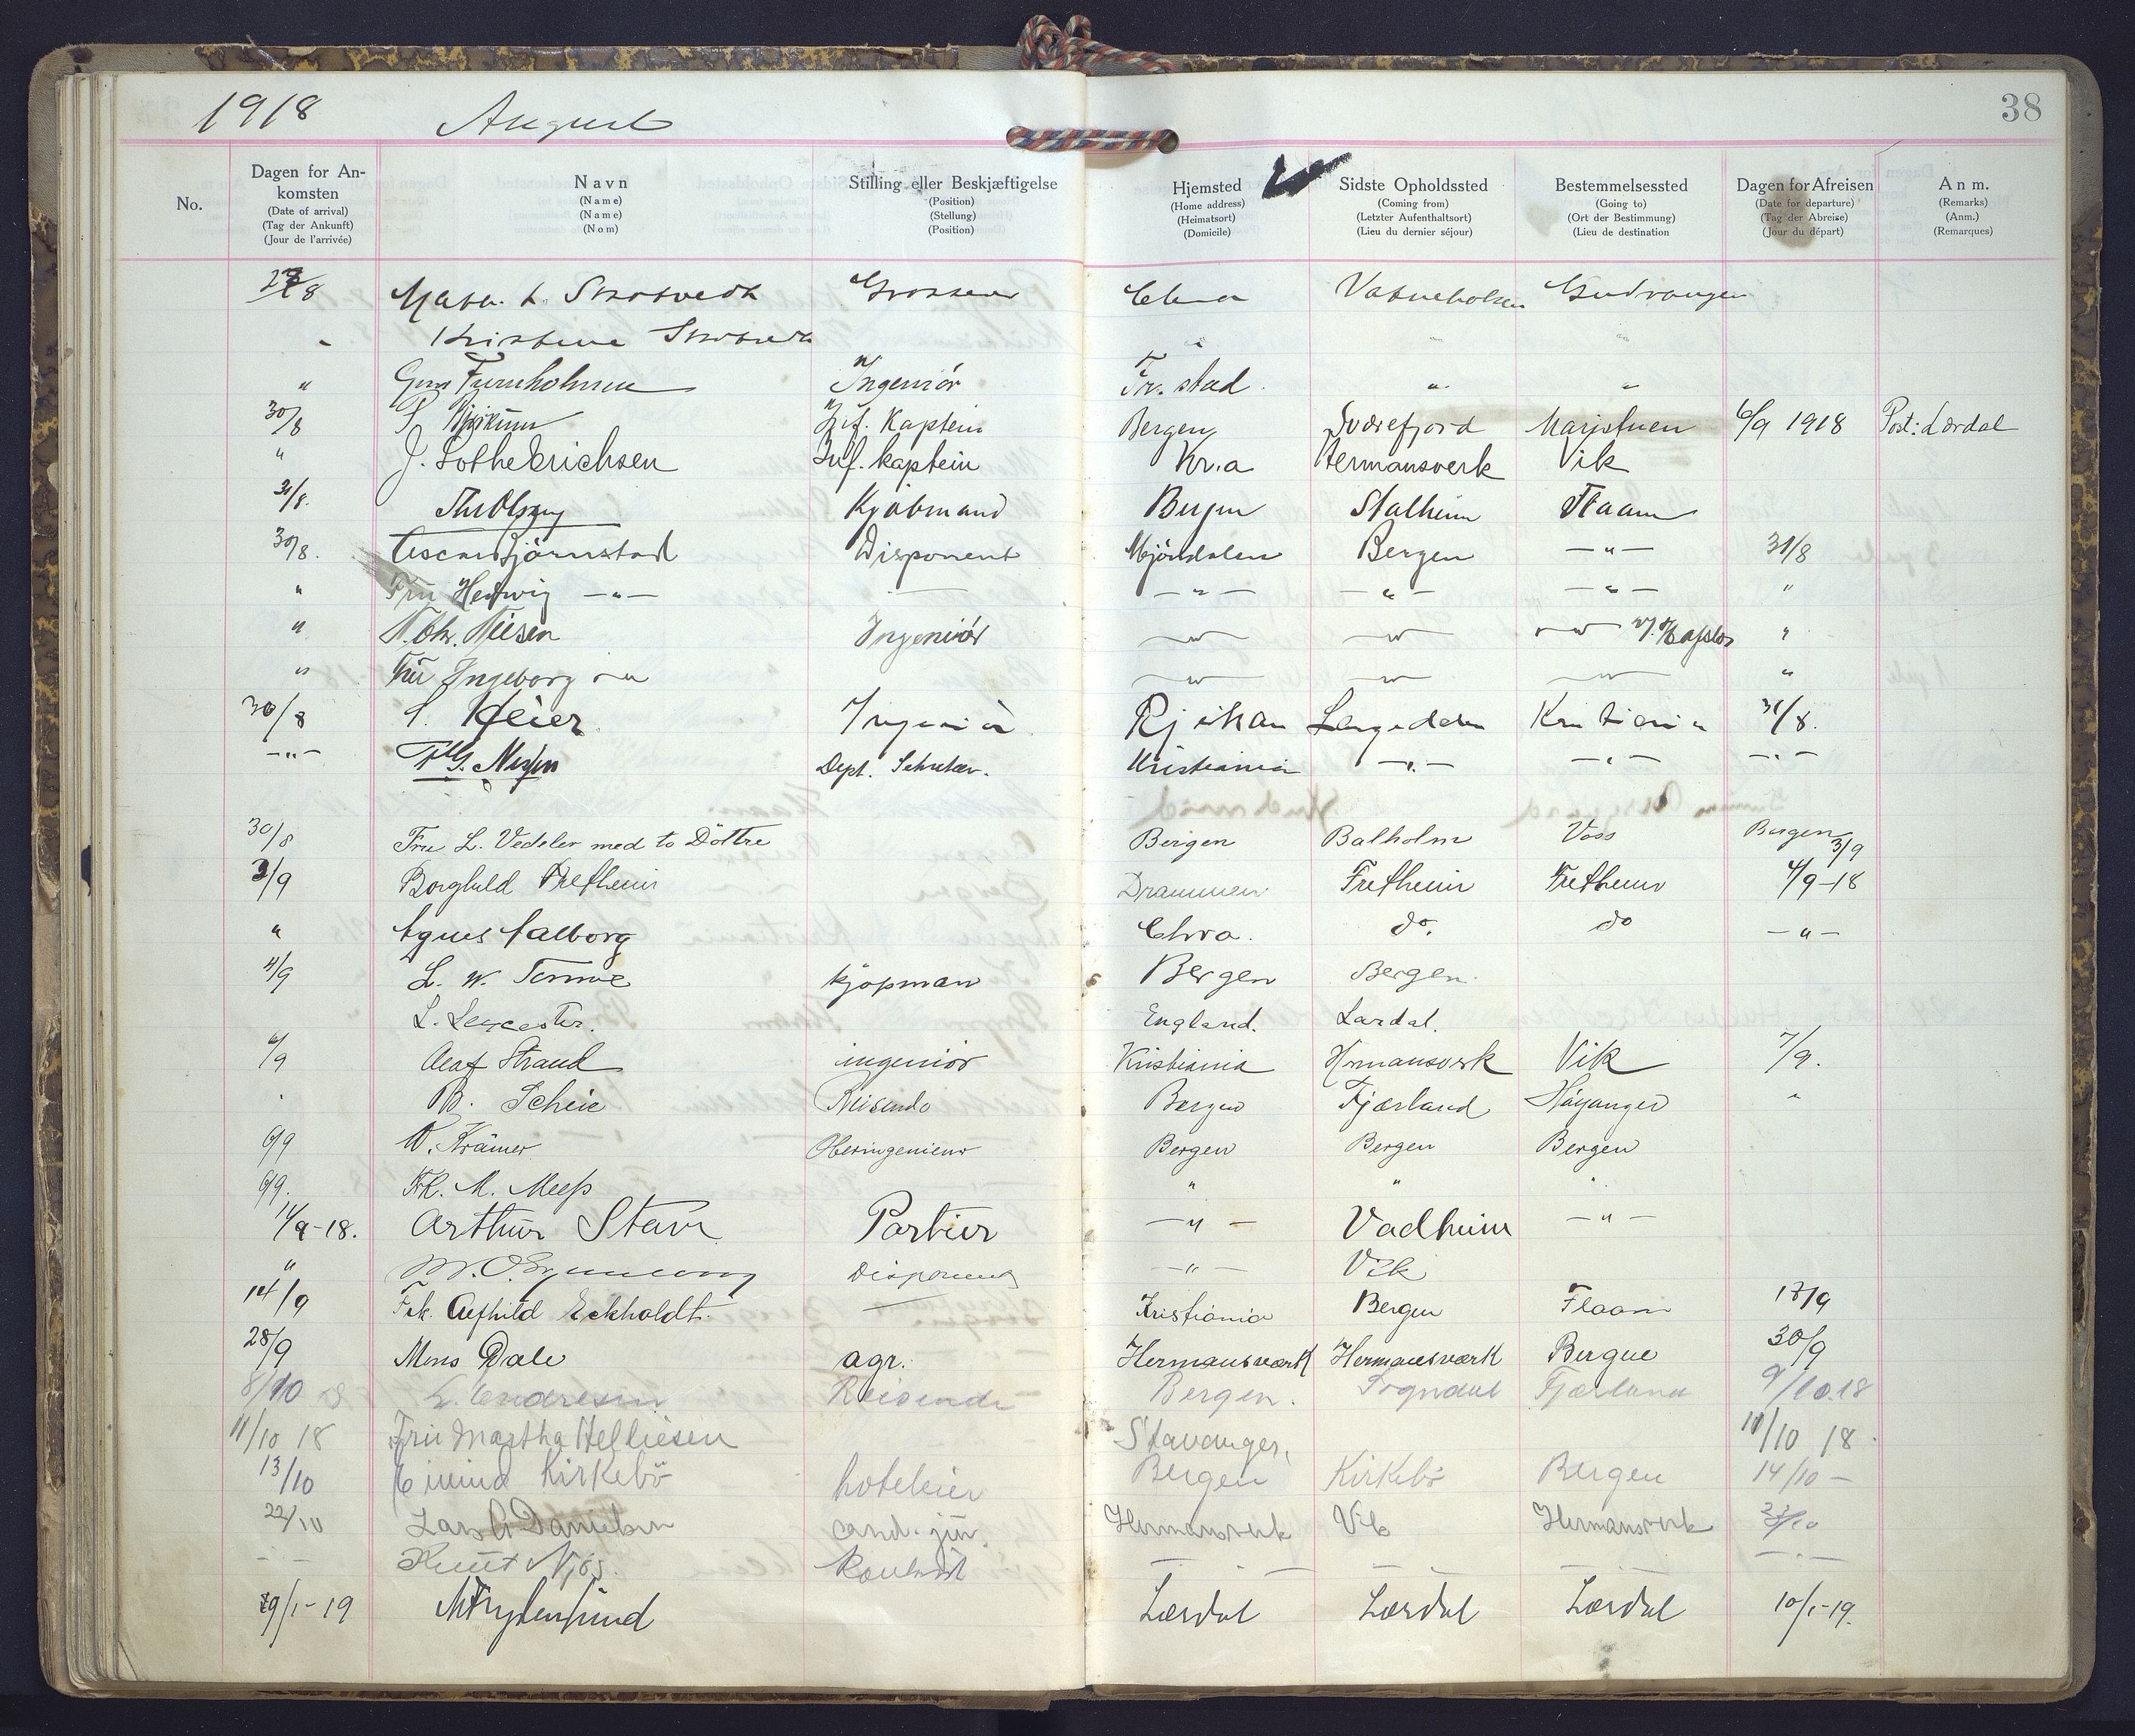 1918 August
38
No.
Dagen for An-
komsten
(Date of arrival)
(Tag der Ankunft)
(Jour de l'arrivée)
Navn
(Name)
(Name)
(Nom)
Stilling eller Beskjæftigelse
(Position)
(Stellung)
(Position)
Hjemsted
(Home address)
(Heimatsort)
(Domicile)
Sidste Opholdssted
(Coming from)
(Letzter Aufenthaltsort)
(Lieu du dernier séjour)
Bestemmelsessted
(Going to)
(Ort der Bestimmung)
(Lieu de destination
Dagen for Afreisen
(Date for departure)
(Tag der Abreise)
(Jour du départ)
Anm.
(Remarks)
(Anm.)
(Remarques)
Grosserer Chra Vatnehalsen Gudvangen
" Kristine " " "
" Ingeniör Fr.stad. " "
30/8 Inf. Kaptein Bergen Sværefjord Maristuen 6/9 1918 Post: Lærdal
" J. Lothe Erichsen Inf. kaptein Kr.a Hermansverk Vik
31/8. Kjøbmand Bergen Stalheim Flaam
30/8. Oscar Björnstad Disponent Mjöndalen Bergen —"— 31/8
" Fru Hedwig —"— —"— —"— —"— "
" Ingeniör —"— —"— —"— "
" Fru Ingeborg —"— —"— —"— —"— "
30/8 Ingeniör Rjukan Kristiania 31/8.
—"— Dept. Sekretær. Kristiania —"— —"— —"—
30/8 Fru L. Vedeler med to Döttre Bergen Balholm Voss Bergen 3/9
3/9 Borghild Fretheim Drammen Fretheim Fretheim 4/9-18
" Agnes Aalborg Chra. do. do —"—
4/9 L. W. kjøpman Bergen Bergen.
L. Leycester. England. Lærdal.
6/9 Olaf Strand ingeniör Kristiania Hermansverk Vik 7/9.
" B. Scheie Reisende Bergen Fjærland Höyanger "
6/9 W. Krämer Oberingenieur Bergen Bergen Bergen
6/9. Frl. M. Meess " " "
11/9-18. Arthur Portier —"— Vadheim —"—
" Disponent —"— Vik
14/9 Frk. Eckholdt. Kristiania Bergen Flaam 17/9
28/9 Mons Dale agr. Hermansværk Hermansværk Bergen 30/9
8/10 L. Endresen Reisende Bergen. Sogndal Fjærland 9/10.18
11/10 18 Fru Martha Helliesen Stavanger, 11/10 18
13/10 Eivind Kirkebö hoteleier Bergen Kirkebö Bergen 14/10 —
22/10 Lars A Danielsen cand. jur. Hermansverk Vik Hermansverk
Knut Njøs.
9/1-19 Lærdal Lærdal Lærdal 10/1-19.